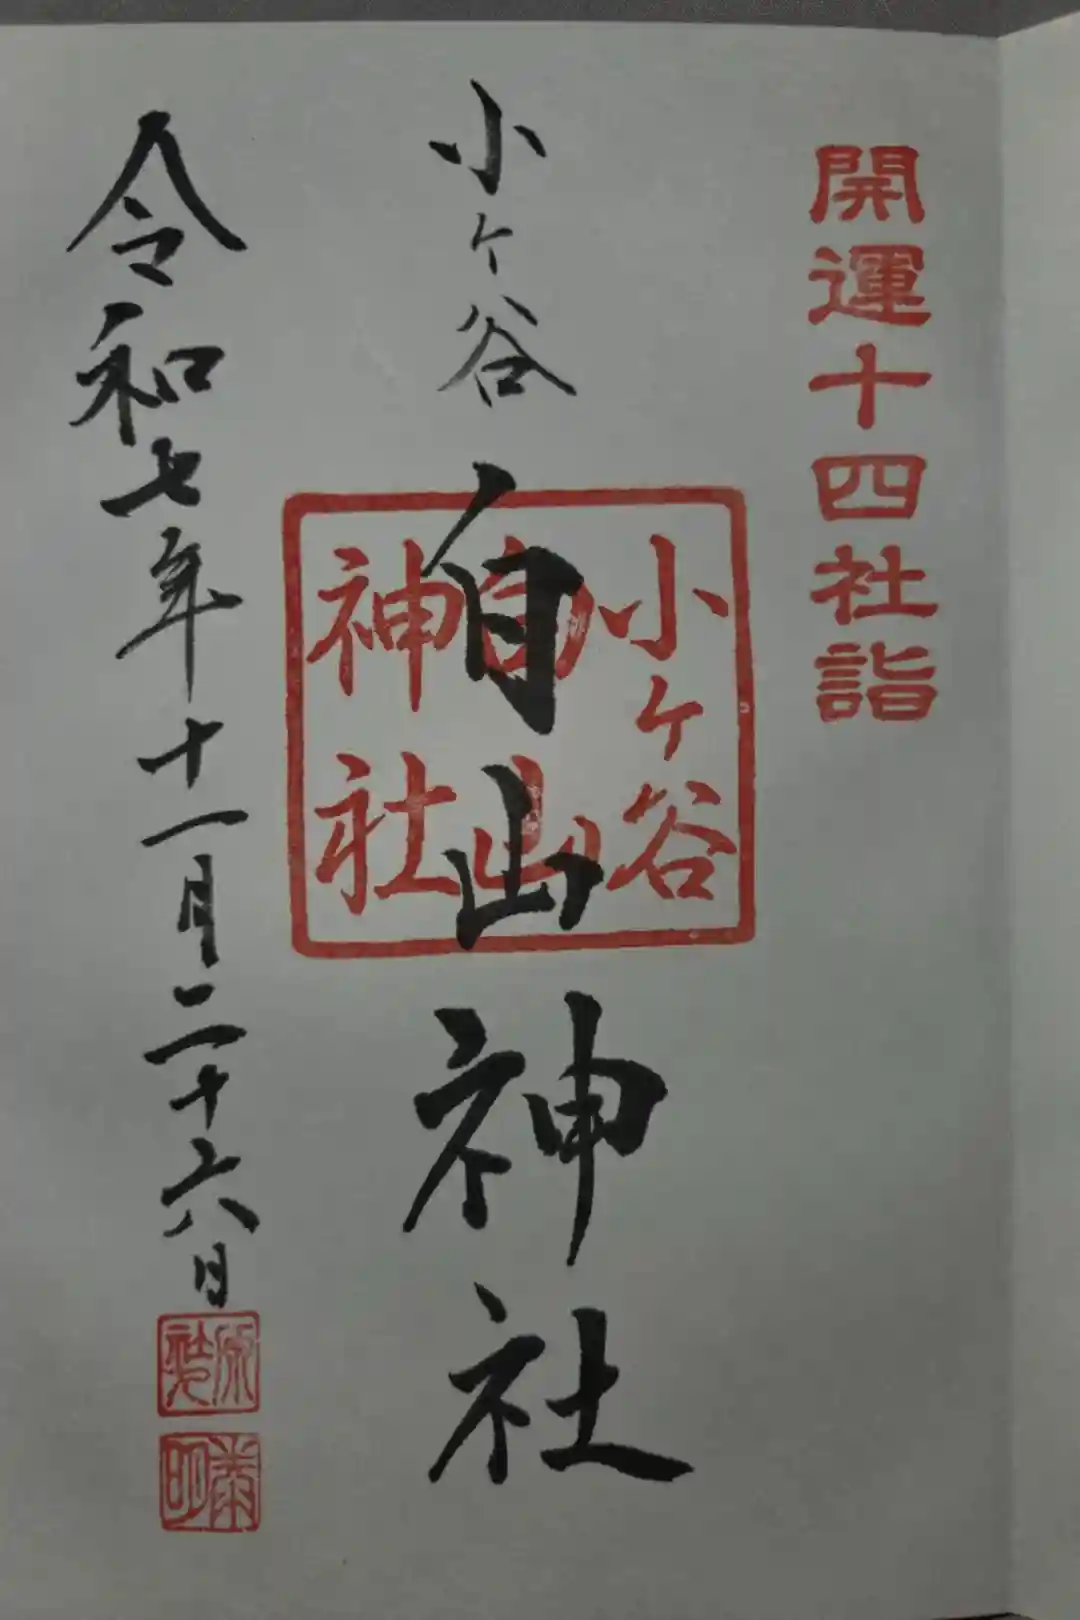 開運十四社詣
小ヶ谷
白山神社
小ヶ谷
白山
神社
令和七年十一月二十六日